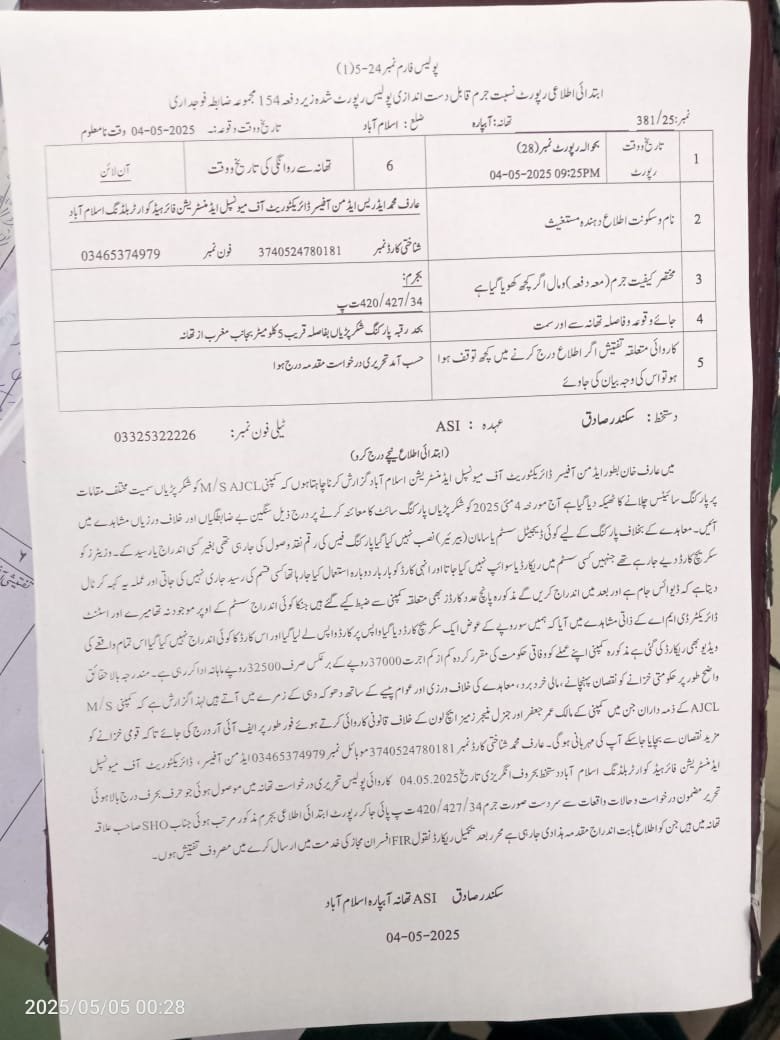 پولیس فارم نمبر 24-5(1)
ابتدائی اطلاعی رپورٹ نسبت جرم قابل دست اندازی پولیس رپورٹ شدہ زیر دفعہ 154 مجموعہ ضابطہ فوجداری
نمبر: 381/25 تھانہ: آبپارہ ضلع: اسلام آباد تاریخ و وقت وقوعہ:۔ 04-05-2025 وقت نامعلوم
1 تاریخ و وقت رپورٹ بحوالہ رپورٹ نمبر (28) 04-05-2025 09:25PM 6 تھانہ سے روانگی کی تاریخ و وقت آن لائن
2 نام و سکونت اطلاع دہندہ مستغیث عارف محمد ایڈریس ایڈمن آفیسر ڈائریکٹوریٹ آف میونسپل ایڈمنسٹریشن فائر ہیڈ کوارٹر بلڈنگ اسلام آباد
شناختی کارڈ نمبر 3740524780181 فون نمبر 03465374979
3 مختصر کیفیت جرم (معہ دفعہ) و مال اگر کچھ کھویا گیا ہے بجرم: 420/427/34 ت پ
4 جائے وقوعہ و فاصلہ تھانہ سے اور سمت بحد رقبہ پارکنگ شکرپڑیاں بفاصلہ قریب 5 کلومیٹر بجانب مغرب از تھانہ
5 کاروائی متعلقہ تفتیش اگر اطلاع درج کرنے میں کچھ توقف ہوا ہو تو اس کی وجہ بیان کی جاوے حسب آمد تحریری درخواست مقدمہ درج ہوا
دستخط: سکندر صادق عہدہ: ASI ٹیلی فون نمبر: 03325322226
(ابتدائی اطلاع نیچے درج کرو)
میں عارف خان بطور ایڈمن آفیسر ڈائریکٹوریٹ آف میونسپل ایڈمنسٹریشن اسلام آباد گزارش کرنا چاہتا ہوں کہ کمپنی M/S AJCL کو شکرپڑیاں سمیت مختلف مقامات
پر پارکنگ سائیٹس چلانے کا ٹھیکہ دیا گیا ہے آج مورخہ 4 مئی 2025 کو شکرپڑیاں پارکنگ سائٹ کا معائنہ کرنے پر درج ذیل سنگین بے ضابطگیاں اور خلاف ورزیاں مشاہدے میں
آئیں۔ معاہدے کے بخلاف پارکنگ کے لیے کوئی ڈیجیٹل سسٹم یا سامان (بیرئیر) نصب نہیں کیا گیا پارکنگ فیس کی رقم نقد وصول کی جا رہی تھی بغیر کسی اندراج یا رسید کے۔ وزیٹرز کو
سکریچ کارڈ دیے جا رہے تھے جنہیں کسی سسٹم میں ریکارڈ یا سوائپ نہیں کیا جاتا اور انہی کارڈ کو بار بار دوبارہ استعمال کیا جا رہا تھا کسی قسم کی رسید جاری نہیں کی جاتی اور عملہ یہ کہہ کر ٹال
دیتا ہے کہ ڈیوائس جام ہے اور بعد میں اندراج کریں گے مذکورہ پانچ عدد کارڈز بھی متعلقہ کمپنی سے ضبط کیے گئے ہیں جنکا کوئی اندراج سسٹم کے اوپر موجود نہ تھا میرے اور اسسٹنٹ
ڈائریکٹر ڈی ایم اے کے ذاتی مشاہدے میں آیا کہ ہمیں سو روپے کے عوض ایک سکریچ کارڈ دیا گیا واپس پر کارڈ واپس لے لیا گیا اور اس کارڈ کا کوئی اندراج نہیں کیا گیا اس تمام واقعے کی
ویڈیو بھی ریکارڈ کی گئی ہے مذکورہ کمپنی اپنے عملے کو وفاقی حکومت کی مقرر کردہ کم از کم اجرت 37000 روپے کے برعکس صرف 32500 روپے ماہانہ ادا کر رہی ہے۔ مندرجہ بالا حقائق
واضح طور پر حکومتی خزانے کو نقصان پہنچانے، مالی خرد برد، معاہدے کی خلاف ورزی اور عوام پیسے کے ساتھ دھوکہ دہی کے زمرے میں آتے ہیں لہذا گزارش ہے کہ کمپنی M/S
AJCL کے ذمہ داران جن میں کمپنی کے مالک عمر جعفر اور جنرل منیجر زمیز ایچ لون کے خلاف قانونی کاروائی کرتے ہوئے فور طور پر ایف آئی آر درج کی جائے تاکہ قومی خزانے کو
مزید نقصان سے بچایا جا سکے آپ کی مہربانی ہوگی۔ عارف محمد شناختی کارڈ نمبر 3740524780181 موبائل نمبر 03465374979 ایڈمن آفیسر، ڈائریکٹوریٹ آف میونسپل
ایڈمنسٹریشن فائر ہیڈ کوارٹر بلڈنگ اسلام آباد دستخط بحروف انگریزی تاریخ 04.05.2025 کاروائی پولیس تحریری درخواست تھانہ میں موصول ہوئی جو حرف بحرف درج بالا ہوئی
تحریر مضمون درخواست و حالات واقعات سے سردست صورت جرم 420/427/34 ت پ پائی جا کر رپورٹ ابتدائی اطلاعی بجرم مذکور مرتب ہوئی جناب SHO صاحب علاقہ
تھانہ میں ہیں جن کو اطلاع بابت اندراج مقدمہ ہذا دی جا رہی ہے محرر بعد تکمیل ریکارڈ نقول FIR افسران مجاز کی خدمت میں ارسال کرے میں مصروف تفتیش ہوں۔
سکندر صادق ASI تھانہ آبپارہ اسلام آباد
04-05-2025
2025/05/05 00:28